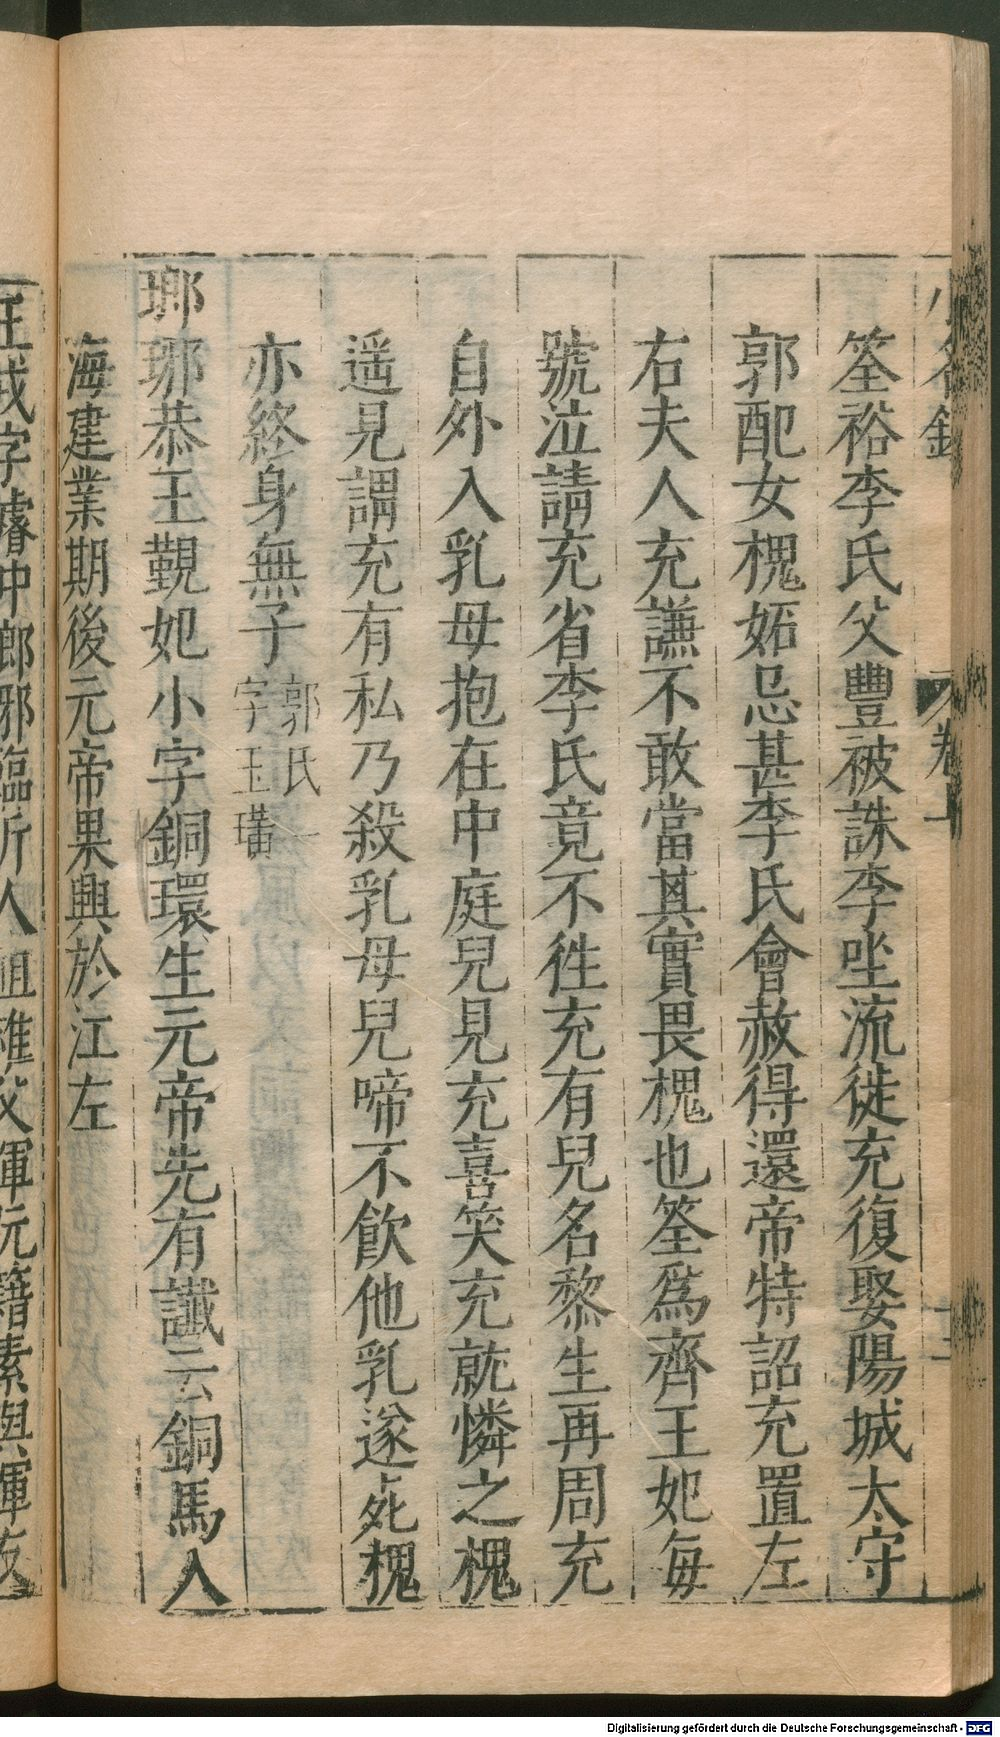 小名錄
卷上
筌裕李氏父豐被誅李坐流徙充復娶陽城太守
郭配女槐妬忌甚李氏會赦得還帝特詔充置左
右夫人充謙不敢當其實畏槐也筌爲齊王妃每
號泣請充省李氏竟不徃充有兒名黎生再周充
自外入乳母抱在中庭兒見充喜笑充就憐之槐
遥見謂充有私乃殺乳母兒啼不飲他乳遂死槐
亦終身無子郭氏
字玉璜
瑯琊恭王覲妃小字銅環生元帝先有讖云銅馬入
海建業期後元帝果興於江左
王戎字濬中瑯琊臨沂人祖雄父渾阮籍素與渾友
Digitalisierung gefördert durch die Deutsche Forschungsgemeinschaft - DFG